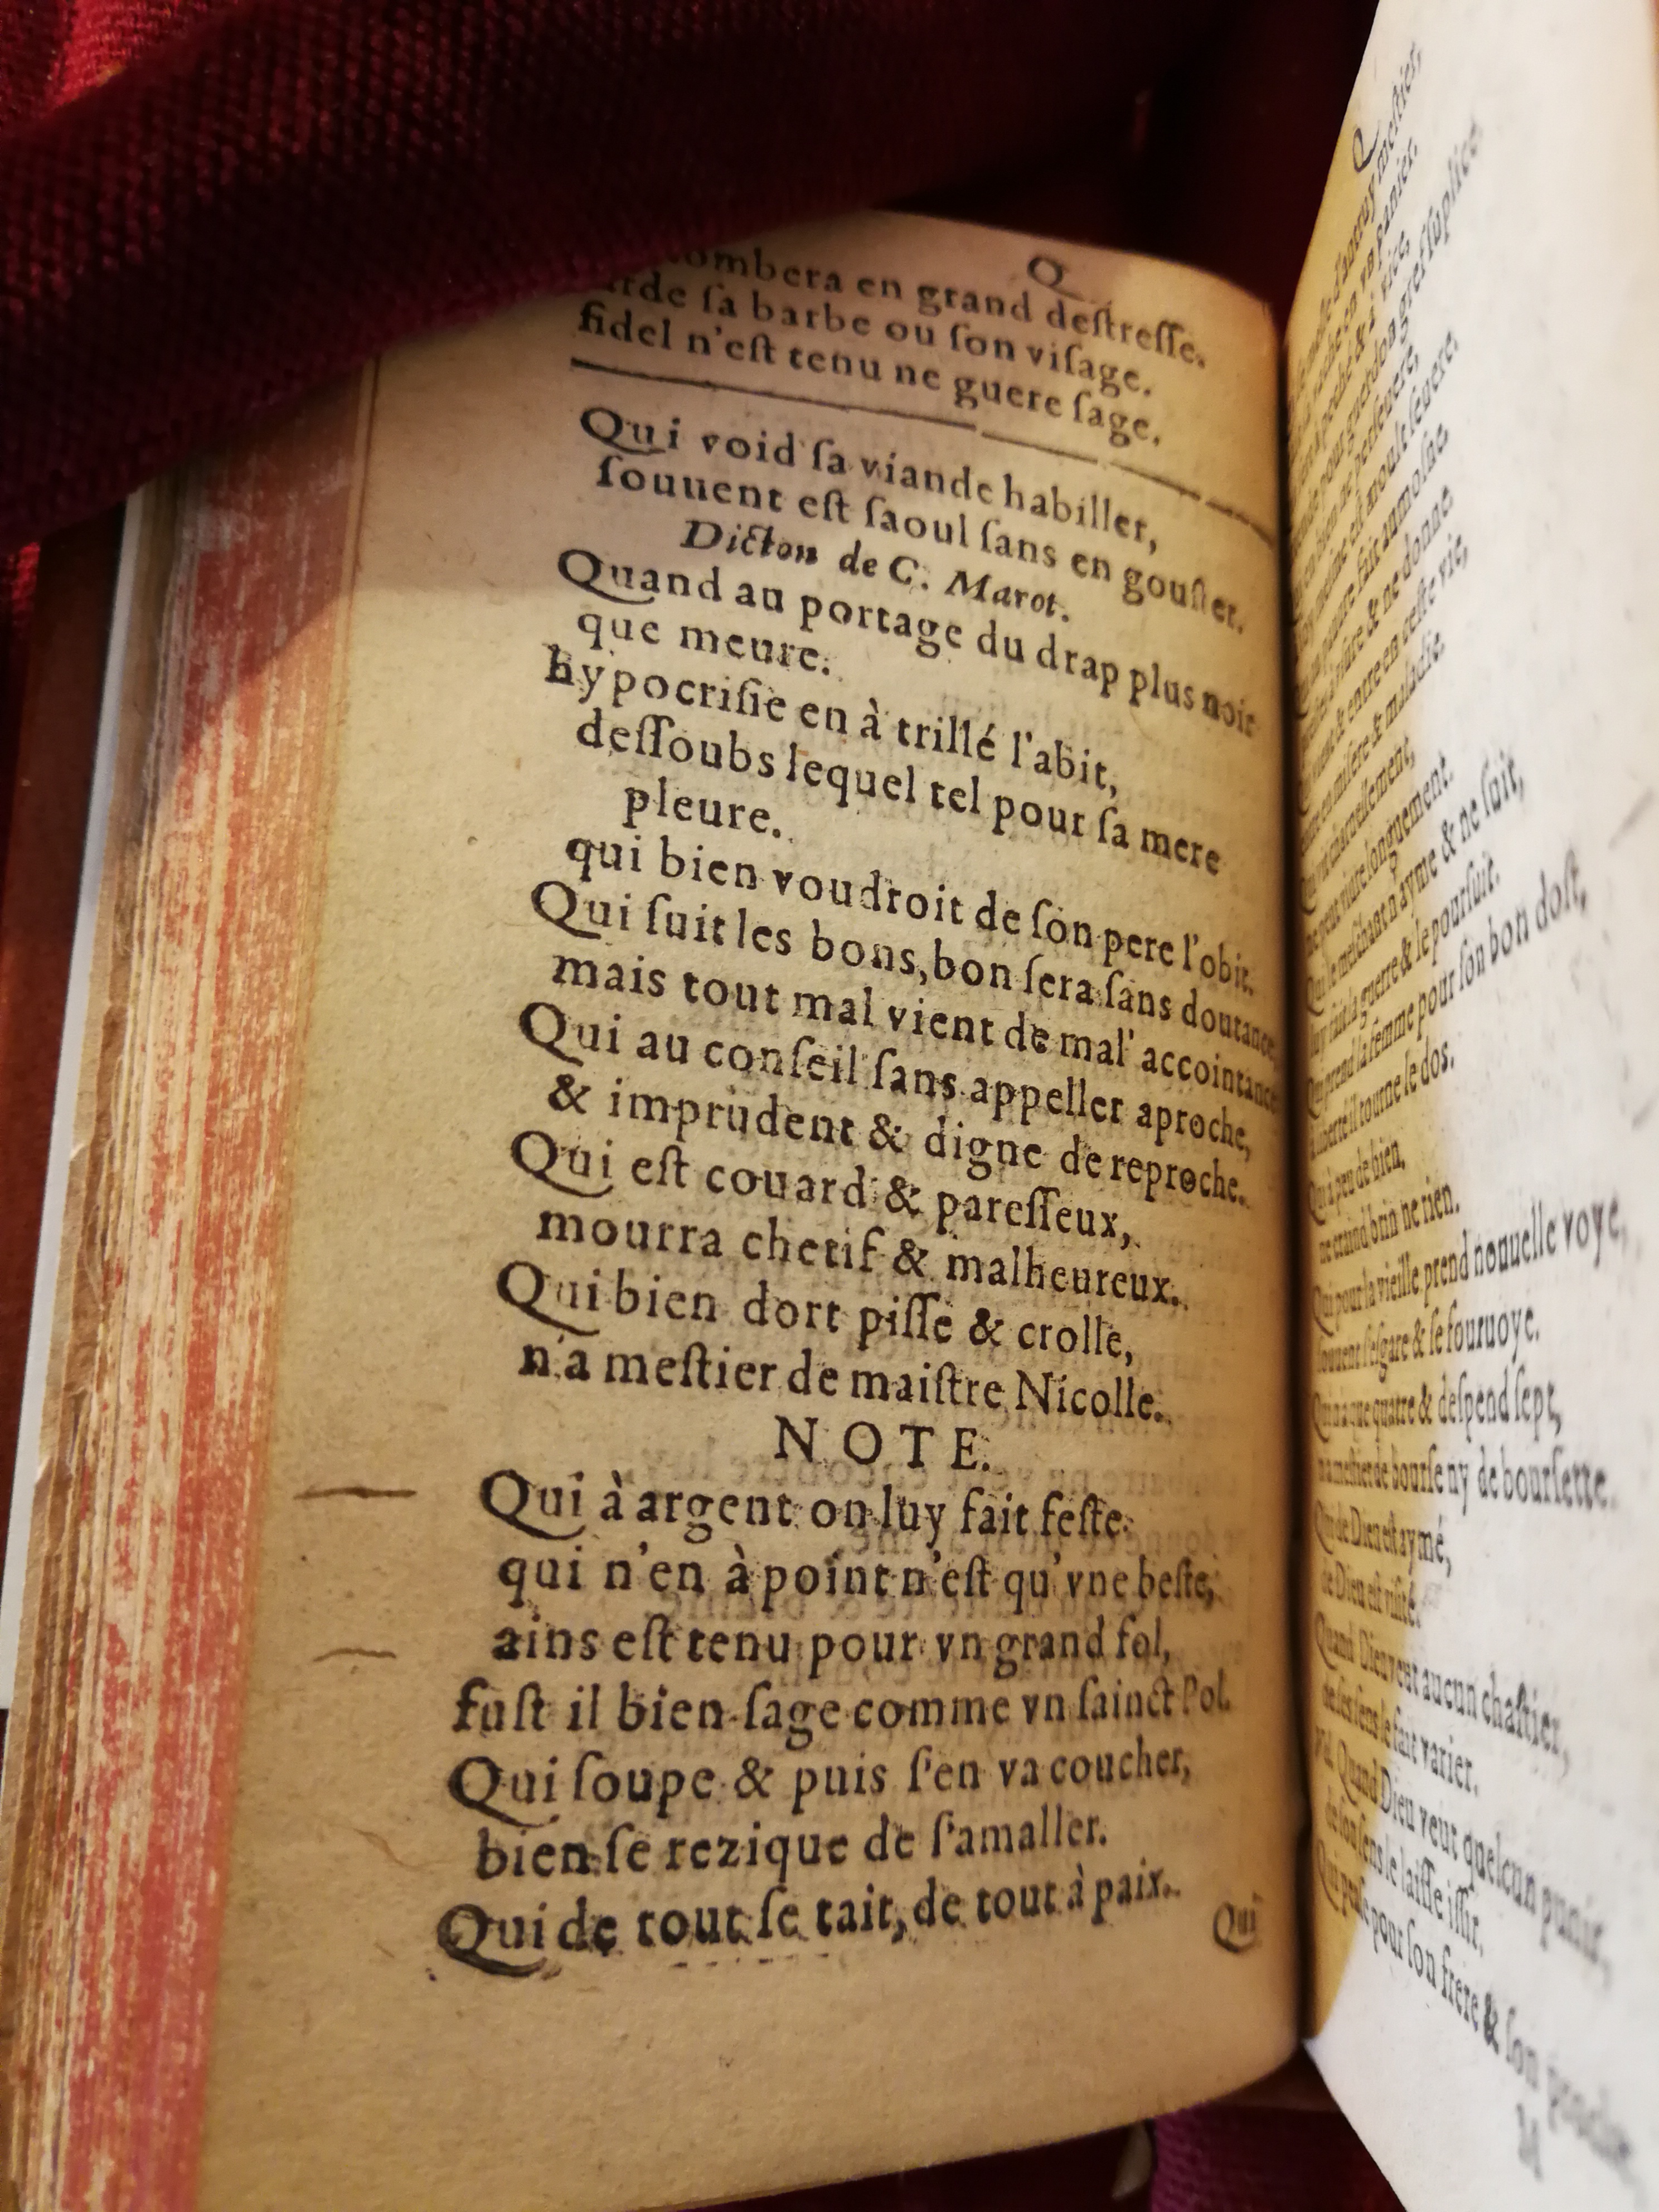 Q
ombera en grand deſtreſſe.
rde ſa barbe ou ſon viſage.
fidel n'eſt tenu ne guere ſage.
Qui void ſa viande habiller,
ſouuent eſt ſaoul ſans en gouſter.
Dicton de C. Marot.
Quand au portage du drap plus noir
que meure.
hypocriſie en à trillé l'abit,
deſſoubs lequel tel pour ſa mere
pleure.
qui bien voudroit de ſon pere l'obit.
Qui ſuit les bons, bon ſera ſans doutance
mais tout mal vient de mal' accointance
Qui au conſeil ſans appeller aproche,
& imprudent & digne de reproche.
Qui eſt couard & pareſſeux,
mourra chetif & malheureux.
Qui bien dort piſſe & crolle,
n'a meſtier de maiſtre Nicolle.
NOTE.
Qui à argent on luy fait feſte.
qui n'en à point n'eſt qu'vne beſte,
ains eſt tenu pour vn grand fol,
fuſt il bien ſage comme vn ſainct Pol.
Qui ſoupe & puis ſ'en va coucher,
bien ſe rezique de ſ'amaller.
Qui de tout ſe tait, de tout à paix.
Qui
Q
d'autruy meſtier,
en vn panier.
& à vice,
pour guerdon gref ſuplice
de perſeuere,
eſt moult ſeuere.
pauure fait aumoſne
& ne donne
& entre en ceſte vie,
en miſere & maladie.
charnellement,
ne peut viure longuement.
Qui le meſchant n'ayme & ne ſuit,
luy fait la guerre & le pourſuit.
Qui prend la femme pour ſon bon doſt,
à liberté il tourne le dos.
Qui à peu de bien,
ne craind brin ne rien.
Qui pour la vieille prend nouuelle voye,
ſouuent ſ'eſgare & ſe fouruoye.
Qui n'a que quatre & deſpend ſept,
n'a meſtier de bourſe ny de bourſette.
Qui de Dieu eſt aymé,
de Dieu eſt viſité.
Quand Dieu veut aucun chaſtier,
de ſes ſens le fait varier.
Quand Dieu veut quelcun punir,
de ſon ſens le laiſſe iſſir.
pour ſon frere & ſon